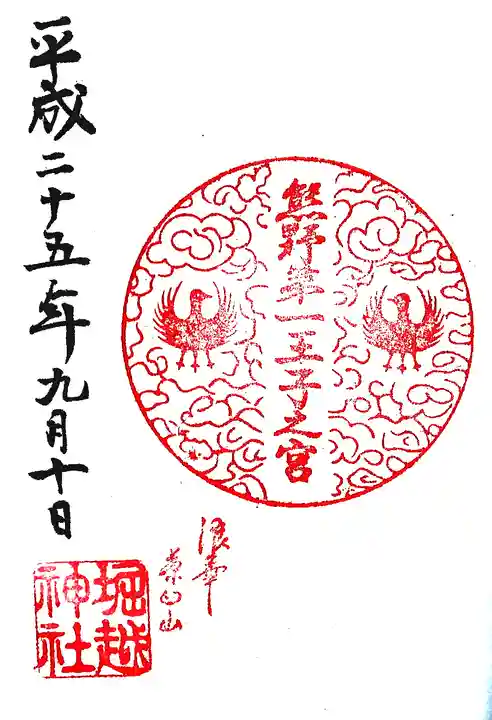 熊野第一王子之宮
浪華
茶臼山
平成二十五年九月十日
堀越
神社